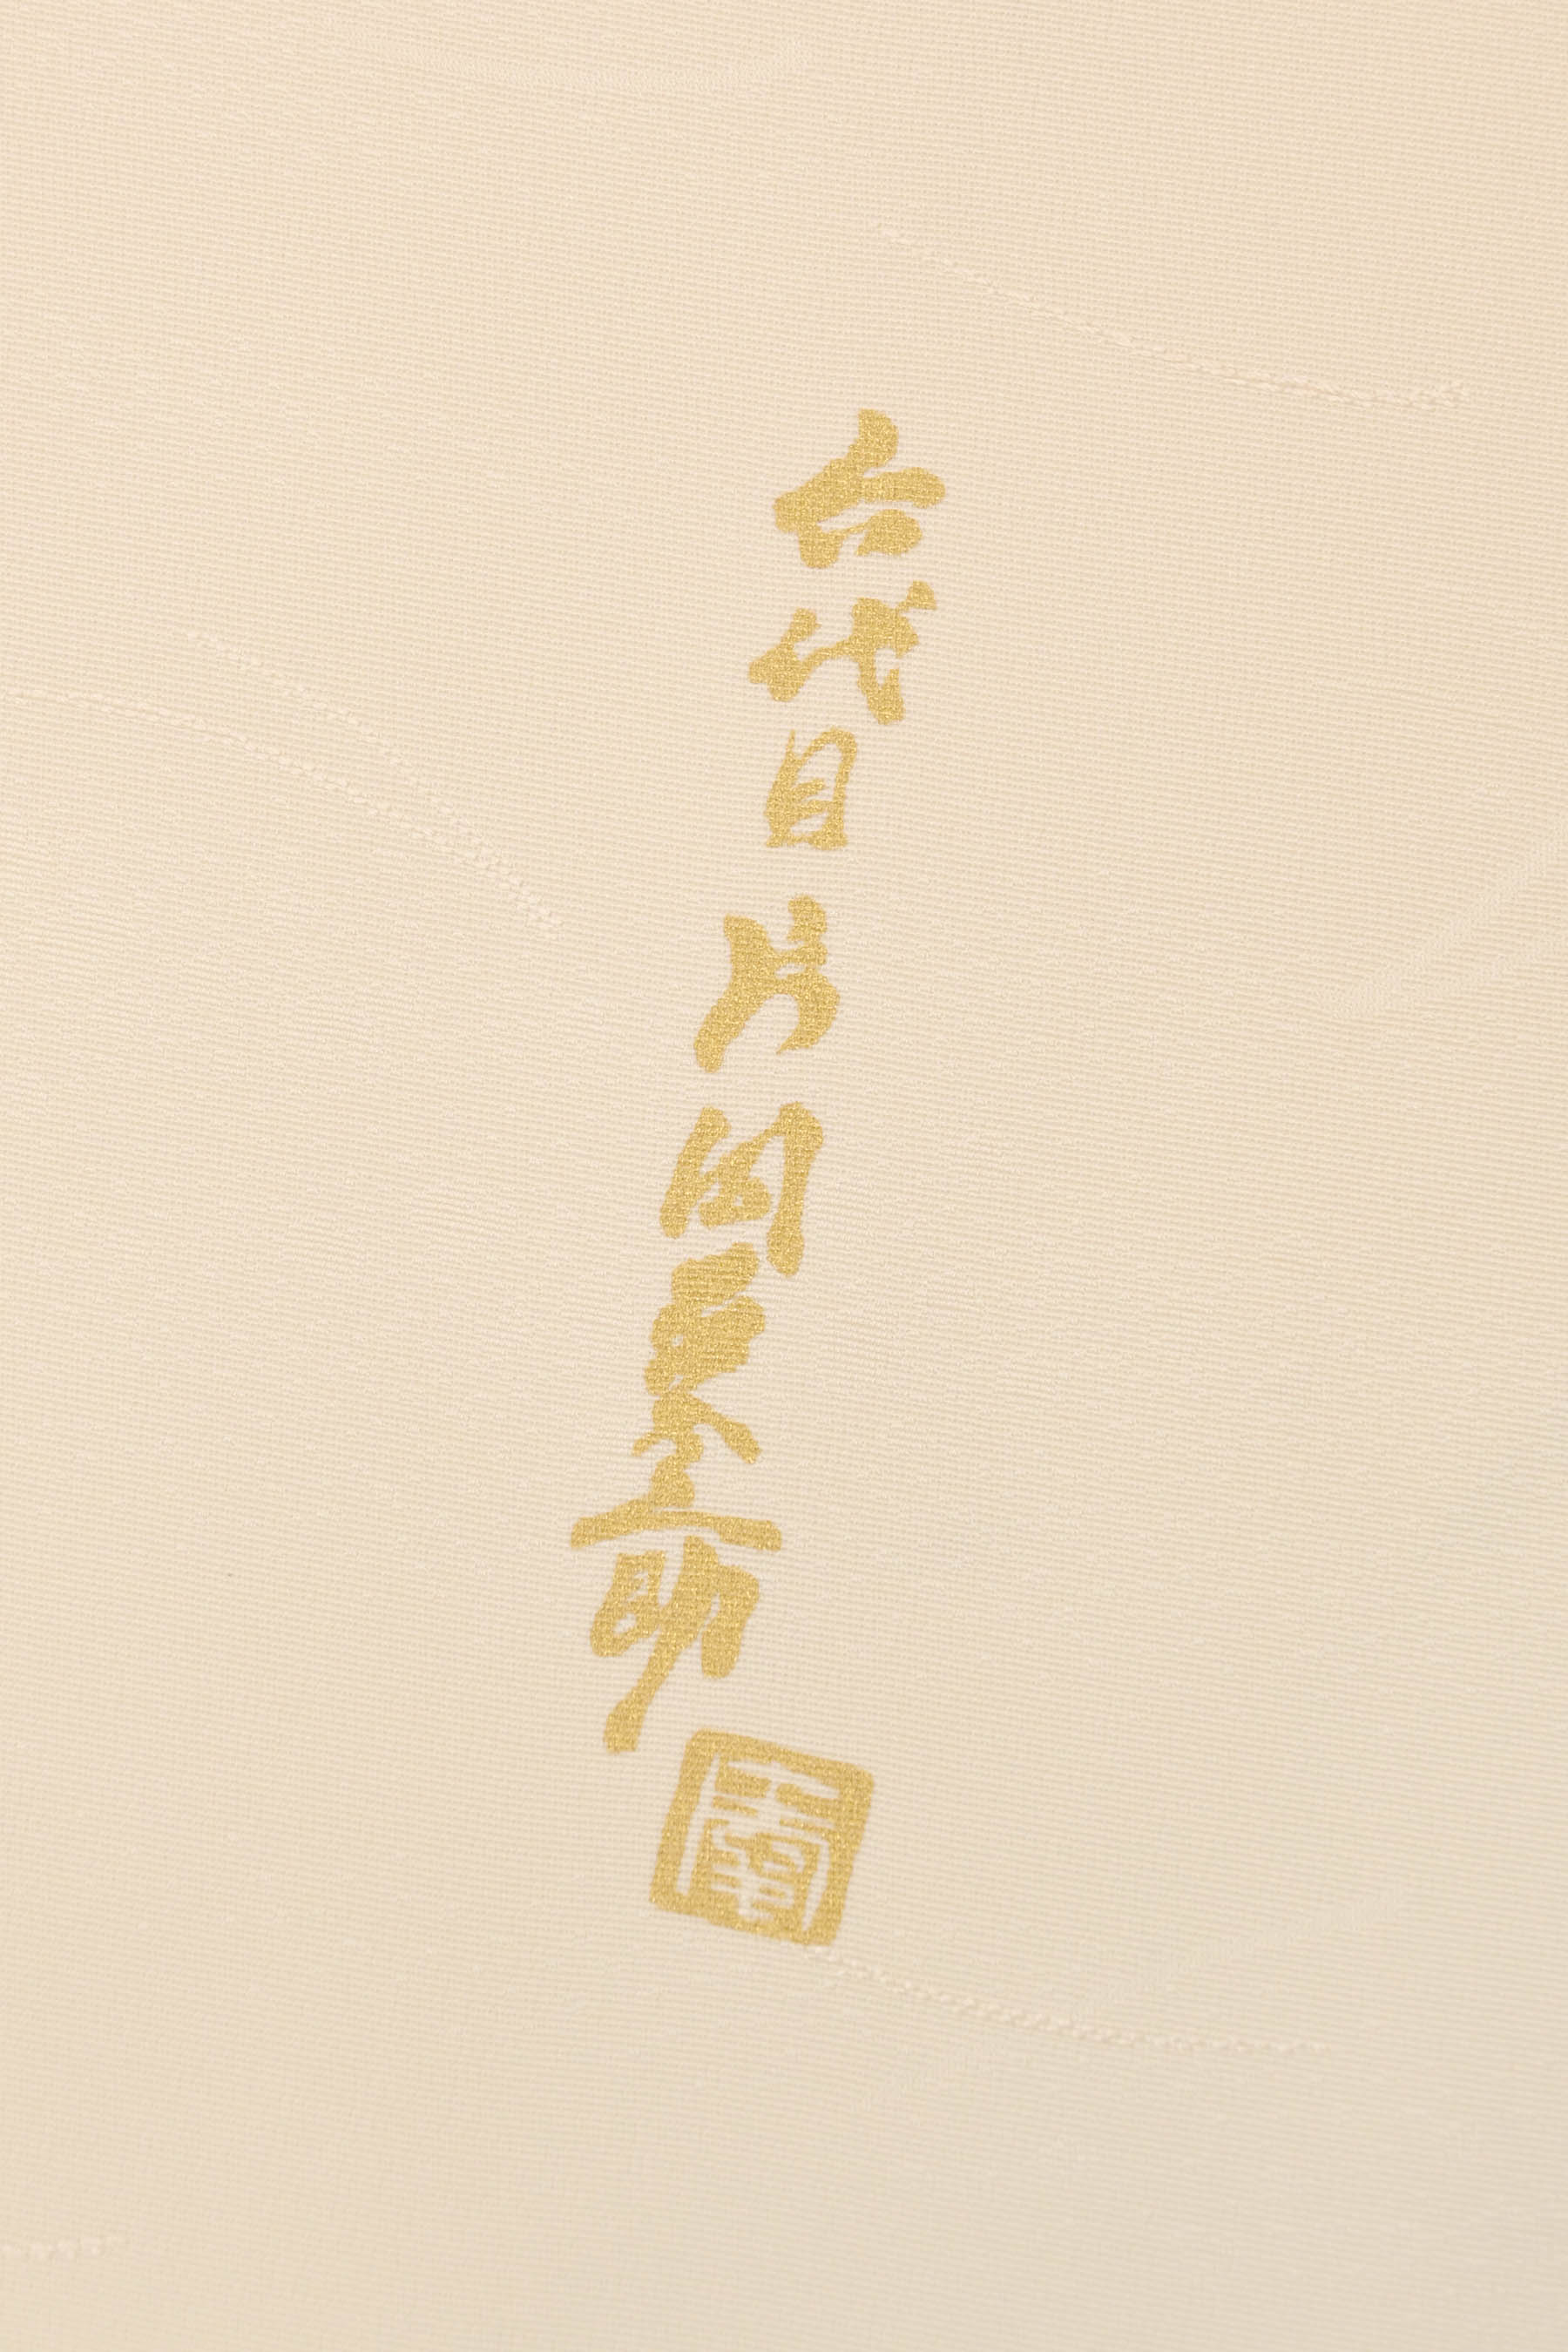 六代目片岡愛之助